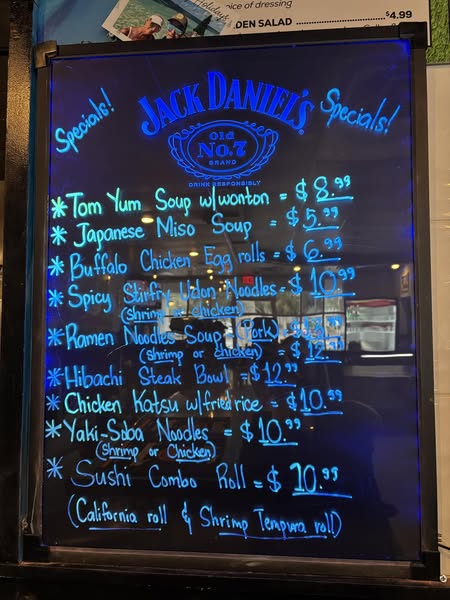 Holidays
oice of dressing
DEN SALAD $4.99
Specials!
JACK DANIEL'S
Specials!
Old
No. 7
BRAND
DRINK RESPONSIBLY
* Tom Yum Soup w/wonton = $8.99
* Japanese Miso Soup = $5.99
* Buffalo Chicken Egg rolls = $6.99
* Spicy Stirfry Udon Noodles = $10.99
(shrimp or chicken)
* Ramen Noodles Soup (Pork) =
(shrimp or chicken) = $12.
* Hibachi Steak Bowl = $12.99
* Chicken Katsu w/friedrice = $10.59
* Yaki-Soba Noodles = $10.99
(shrimp or Chicken)
* Sushi Combo Roll = $10.99
(California roll & Shrimp Tempura roll)